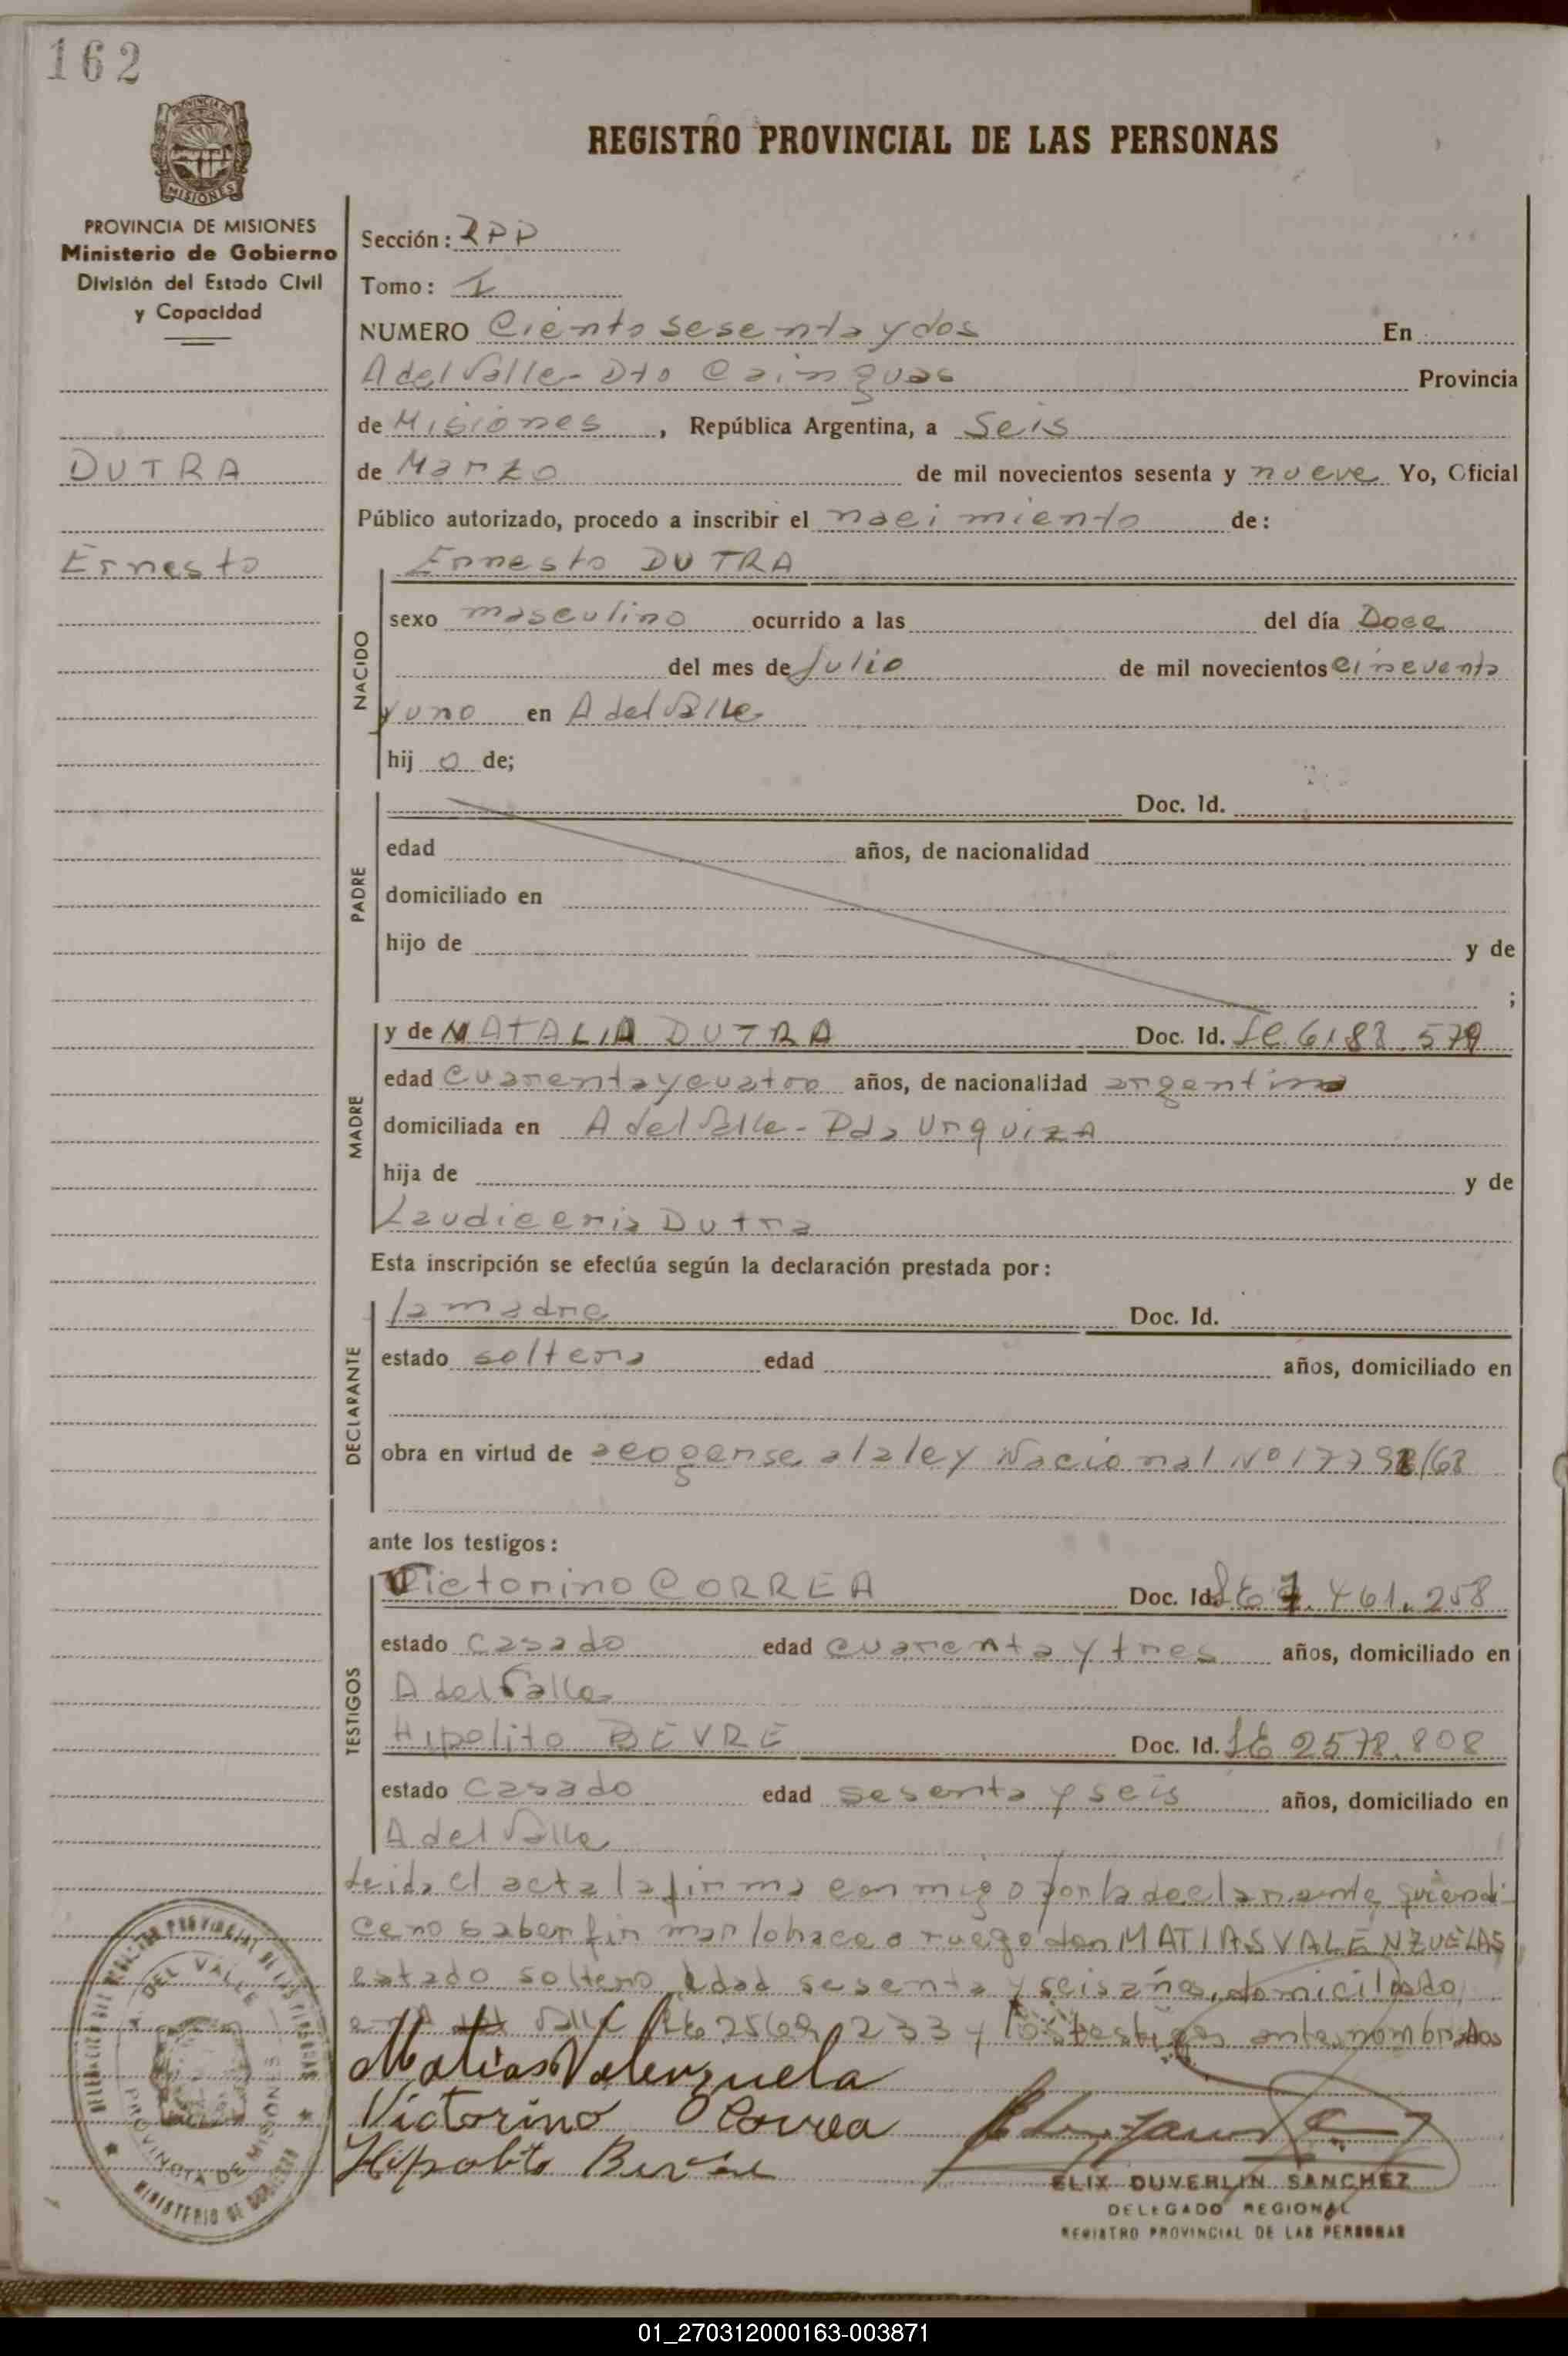 162
PROVINCIA DE MISIONES
Ministerio de Gobierno
División del Estado Civil
y Capacidad
DUTRA
Ernesto
REGISTRO PROVINCIAL DE LAS PERSONAS
Sección: RPP
Tomo: I
NUMERO Ciento sesenta y dos En
A del Valle - Dto Cainguas Provincia
de Misiones, República Argentina, a Seis
de Marzo de mil novecientos sesenta y nueve Yo, Oficial
Público autorizado, procedo a inscribir el nacimiento de:
Ernesto DUTRA
NACIDO
sexo masculino ocurrido a las del día Doce
del mes de Julio de mil novecientos cincuenta
y uno en A del Valle
hij o de;
PADRE
Doc. Id.
edad años, de nacionalidad
domiciliado en
hijo de y de
;
MADRE
y de NATALIA DUTRA Doc. Id. LC 6188.579
edad cuarenta y cuatro años, de nacionalidad argentina
domiciliada en A del Valle - Pda Urquiza
hija de y de
Laudiceria Dutra
Esta inscripción se efectúa según la declaración prestada por:
DECLARANTE
la madre Doc. Id.
estado soltera edad años, domiciliado en
obra en virtud de acogerse a la ley Nacional Nº 17792/68
ante los testigos:
TESTIGOS
Victorino CORREA Doc. Id. LE 7.461.258
estado Casado edad cuarenta y tres años, domiciliado en
A del Valle
Hipolito BEVRE Doc. Id. LE 2578.808
estado Casado edad sesenta y seis años, domiciliado en
A del Valle
Leida el acta la firma conmigo por la declarante quien di
ce no saber firmar lo hace a ruego don MATIAS VALENZUELAS
estado soltero edad sesenta y seis años, domiciliado
en A del Valle LE 2569.233 y los testigos antes nombrados
Matias Valenzuela
Victorino Correa
Hipolito Bevre
ELIX DUVERLIN SANCHEZ
DELEGADO REGIONAL
REGISTRO PROVINCIAL DE LAS PERSONAS
DEL VALLE
PROVINCIA DE MISIONES
MINISTERIO DE GOBIERNO
01_270312000163-003871